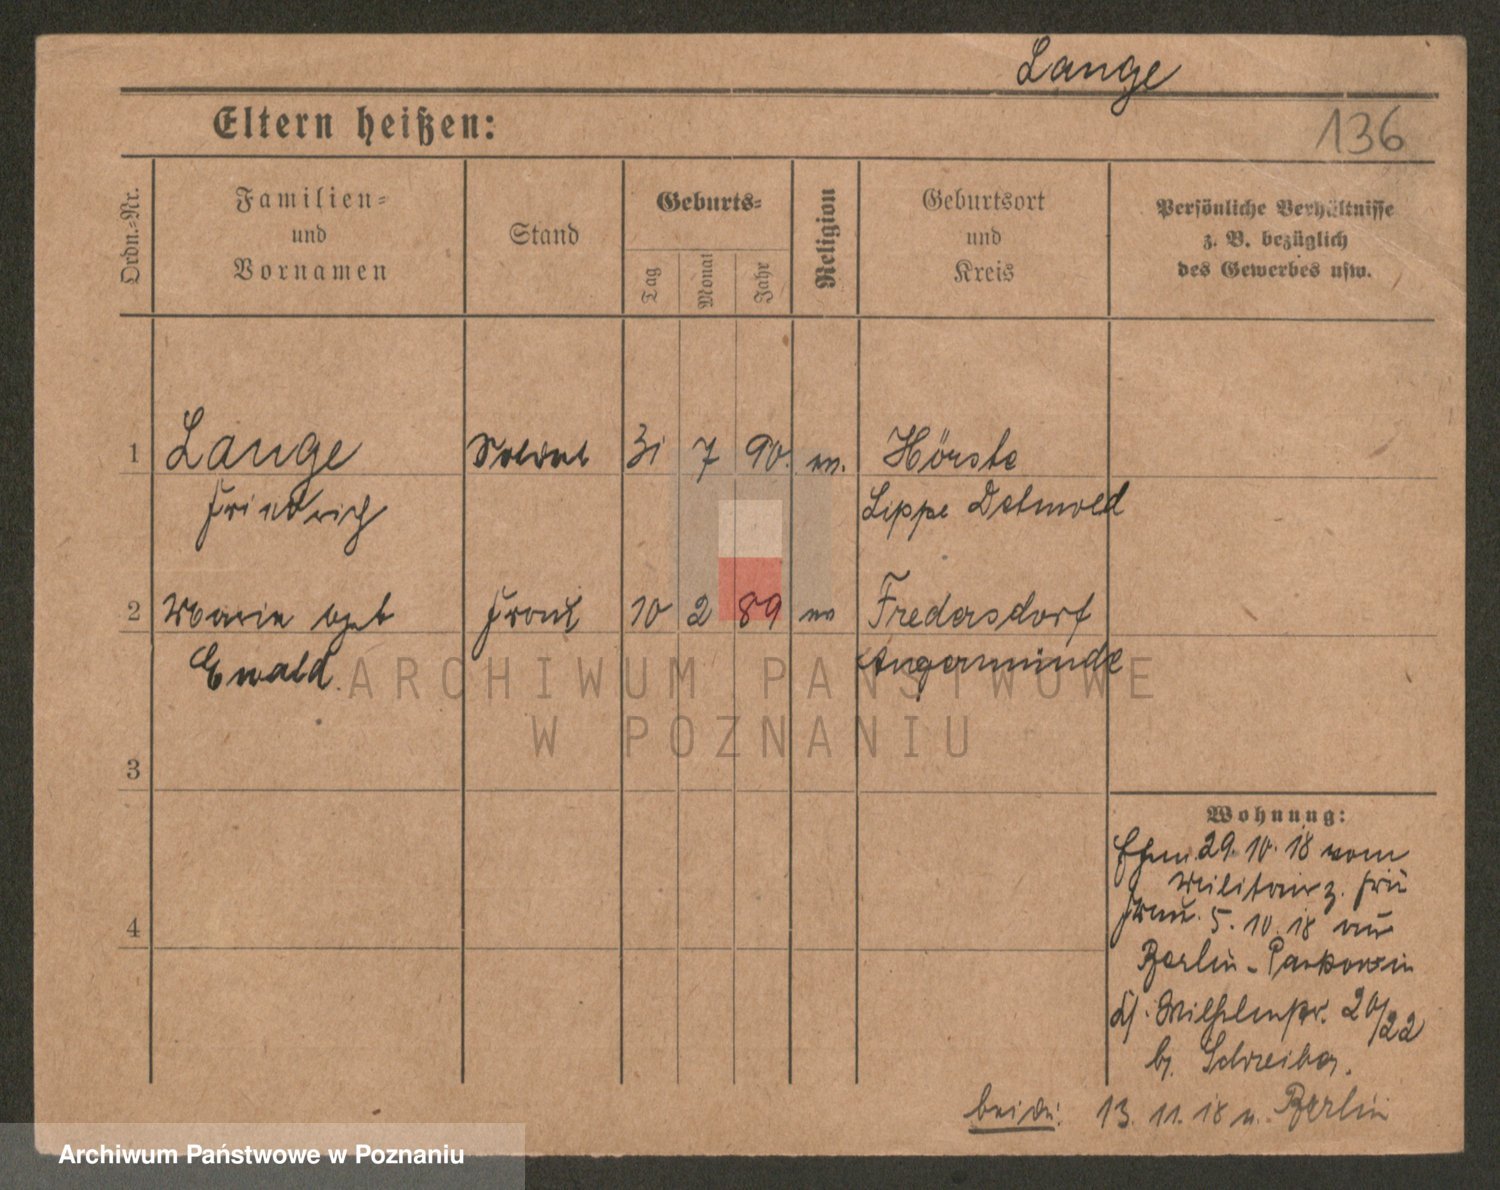 Lange
Eltern heißen:
136
Ordn.-Nr.
Familien-
und
Vornamen
Stand
Geburts-
Tag
Monat
Jahr
Religion
Geburtsort
und
Kreis
Persönliche Verhältnisse
z. B. bezüglich
des Gewerbes usw.
1 Lange Soldat 31 7 90. ev. Hörste
Friedrich Lippe Detmold
2 Marie geb Frau 10 2 89 ev Fredersdorf
Ewald. Angermünde
3
4
Wohnung:
Ehem. 29. 10. 18 vom
Militair z.
Frau. 5. 10. 18 von
Berlin-
Wilhelmstr. 20/22
b. Schreiber.
beide: 13. 11. 18 n. Berlin
ARCHIWUM PAŃSTWOWE
W POZNANIU
Archiwum Państwowe w Poznaniu